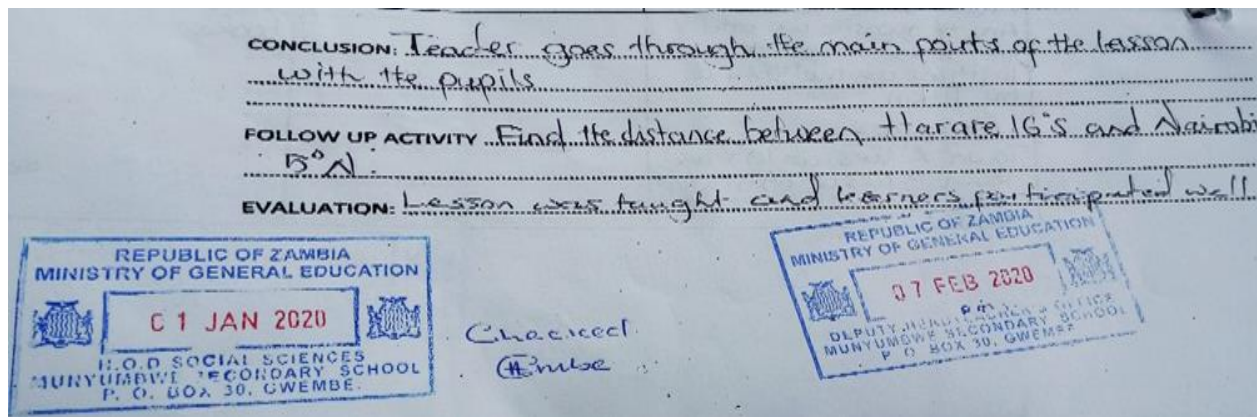 CONCLUSION: Teacher goes through the main points of the lesson
with the pupils
FOLLOW UP ACTIVITY Find the distance between Harare 16°S and Nairobi
5°N.
EVALUATION: Lesson was taught and learners participated well
REPUBLIC OF ZAMBIA
MINISTRY OF GENERAL EDUCATION
01 JAN 2020
H.O.D SOCIAL SCIENCES
MUNYUMBWE SECONDARY SCHOOL
P. O. BOX 30, GWEMBE
Checked
REPUBLIC OF ZAMBIA
MINISTRY OF GENERAL EDUCATION
07 FEB 2020
DEPUTY OFFICE
MUNYUMBWE SECONDARY SCHOOL
P O BOX 30, GWEMBE